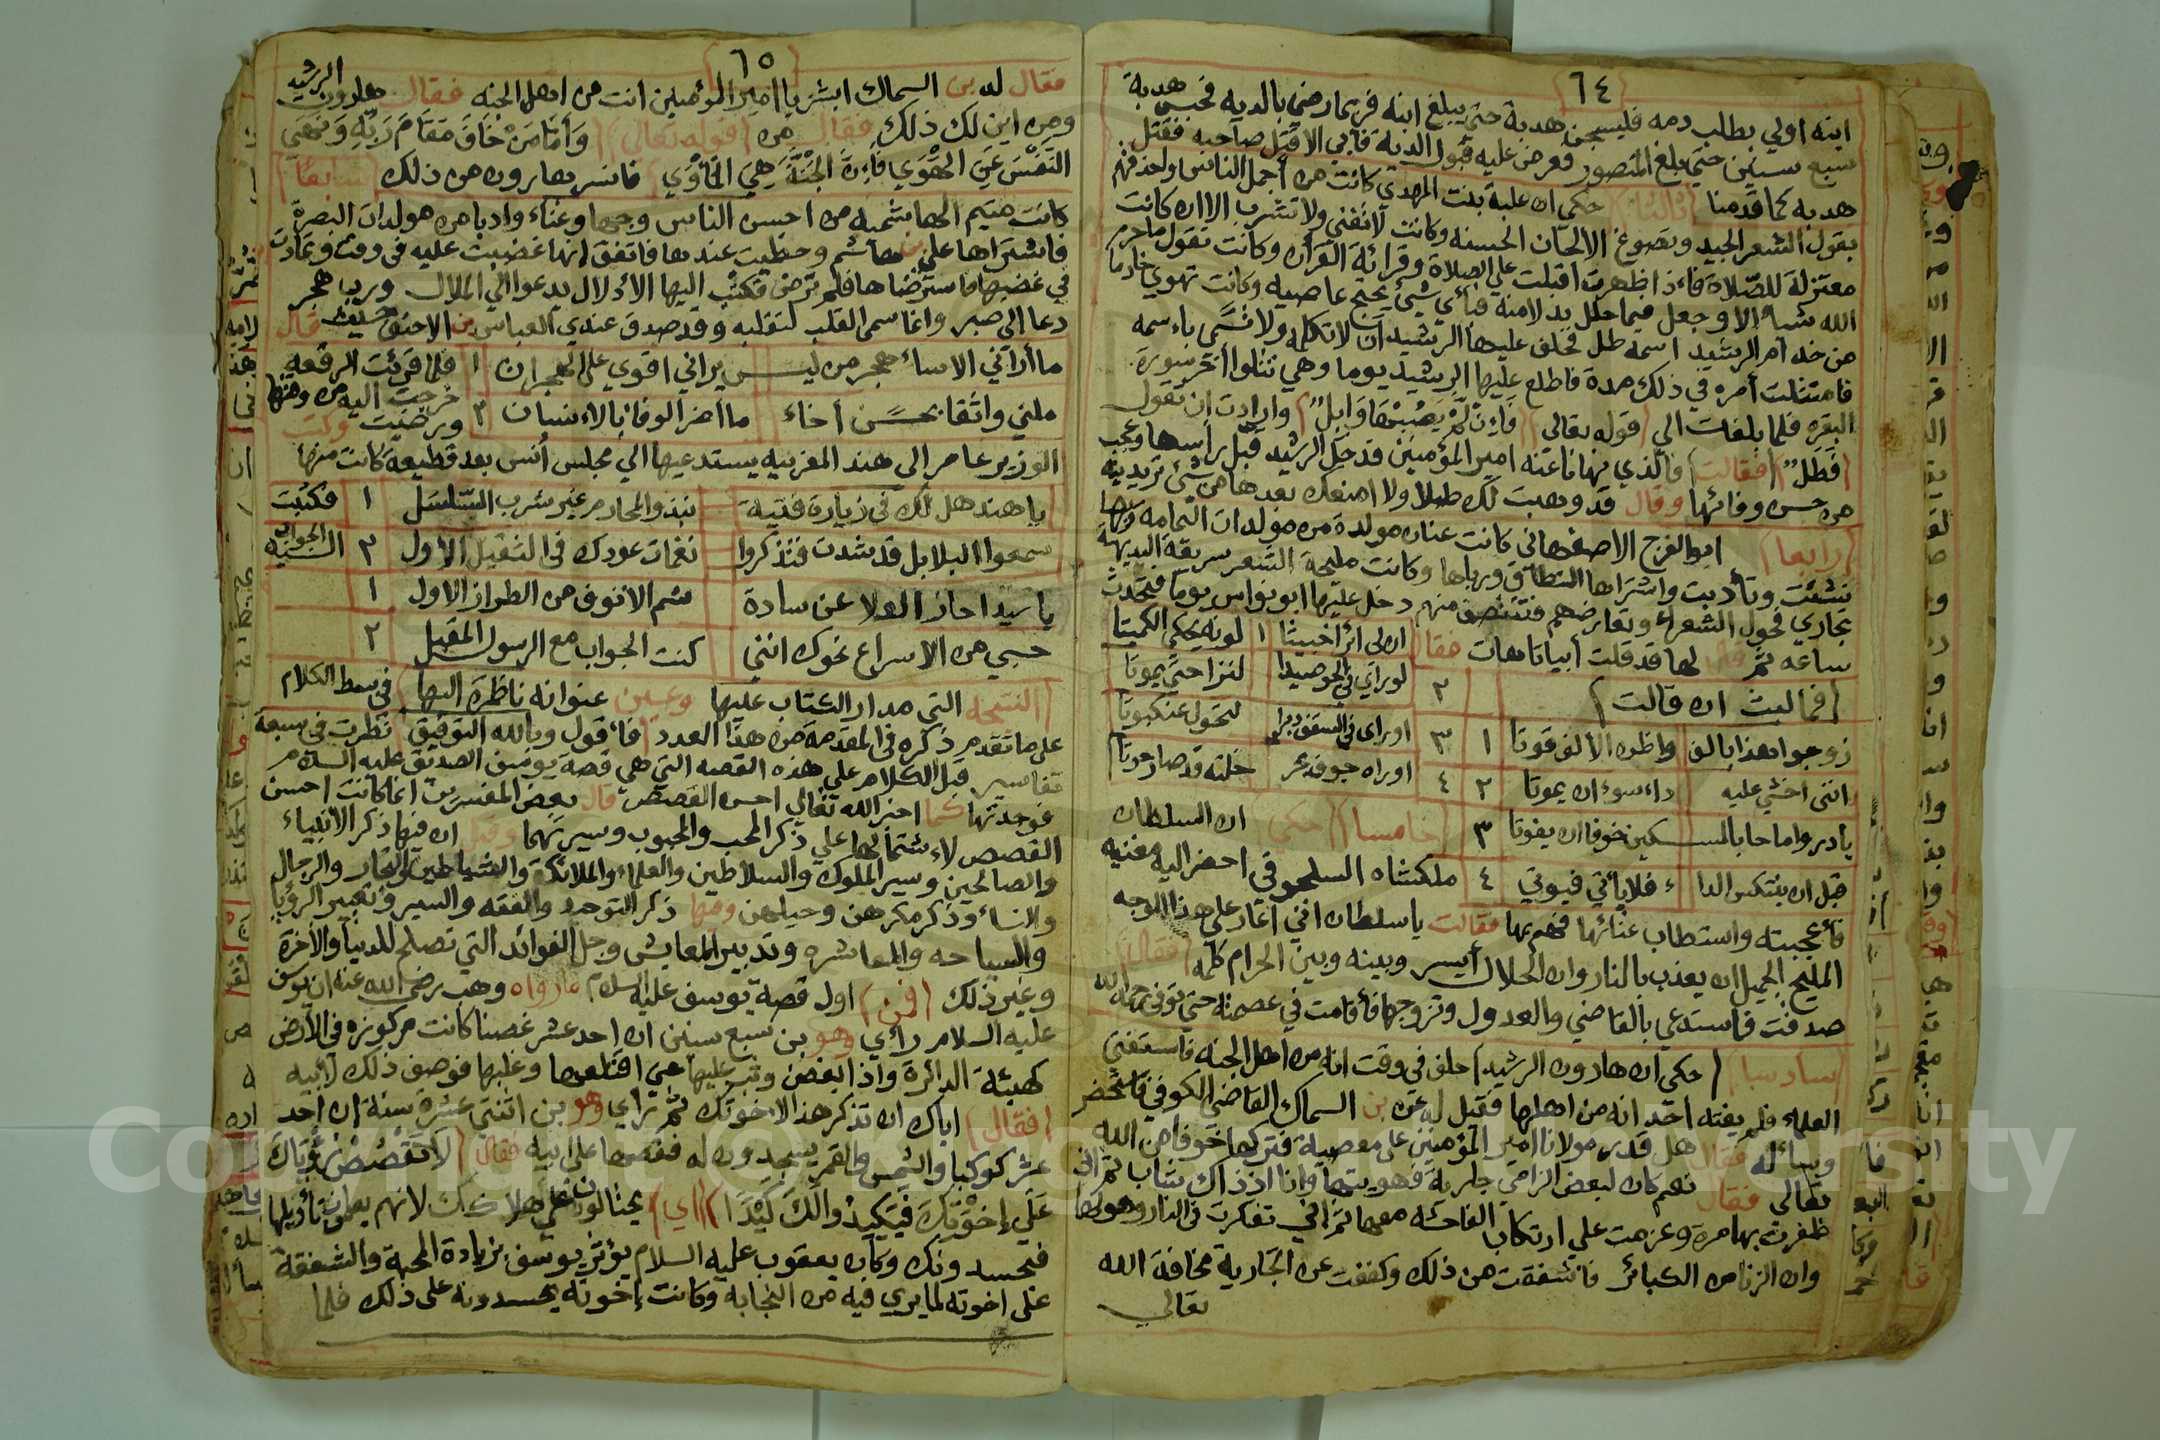 ٦٤
ابنه اولي بطلب دمه فليسجن هدبة حتى يبلغ ابنه فربما رضي بالدية فحبس هدبة
سبع سنين حتى بلغ المنصور فعرض عليه قبول الدية فأبى الا قتل صاحبه فقتل
هدبه كما قدمنا ثالثا حكي ان علية بنت المهدي كانت من أجمل الناس واحذقهم
بقول الشعر الجيد وبصوغ الالحان الحسنه وكانت لا تغني ولا تشرب الا ان كانت
معتزلة للصلاة فاءذا طهرت اقبلت على الصلاة وقرائة القرآن وكانت تقول ما حرم
الله شيأ الا وجعل فيما حلل بدلا منه فبأي شيئ يحتج عاصيه وكانت تهوي خادما
من خدام الرشيد اسمه طل فحلف عليها الرشيد ان لا تكلمه ولا تسمى باءسمه
فامتثلت أمره في ذلك مدة فاطلع عليها الرشيد يوما وهي تتلوا أخر سورة
البقره فلما بلغت الي قوله تعالي فَاءِن لَّمْ يُصِبْهَا وَابِلٌ وارادت ان تقول
فَطَلٌّ فقالت فالذي نهانا عنه امير المؤمنين فدخل الرشيد فقبل رأسها وعجب
من حسن وفائها وقال قد وهبت لك طلا ولا امنعك بعدها من شئ تريدينه
رابعا ابو الفرج الاصفهاني كانت عنان مولدة من مولدات اليمامه وبها
نشئت وتأدبت واشتراها النطافي ورباها وكانت مليحة الشعر سريعة البديهة
تجاري فحول الشعراء وتعارضهم فتنتصف منهم دخل عليها ابو نواس يوما فتحدث
ساعه ثم قال لها قد قلت أبياتا هات فقال ان لي ائرا خبيثا ١ لونه يحكي الكميتا
فما لبث ان قالت ٢ لو رأي في الجو صيدا لنزا حتى يموتا
زوجوا هذا بالف واظن الألف قوتا ١ ٣ او رأى في السقف دبرا لتحول عنكبوتا
انني اخشي عليه داء سوء ان يموتا ٢ ٤ او رآه جوف بحر خلته قد صار حوتا
بادروا ما حل بالمسكين خوفا ان يفوتا ٣ خامسا حكي ان السلطان
قبل ان ينتكس الدا ء فلا يأتي فيوتي ٤ ملكشاه السلجوقي احضر اليه مغنيه
فأعجبته واستطاب غنائها فهم بها فقالت يا سلطان انني اغار على هذا الوجه
المليح الجميل ان يعذب بالنار وان الحلال أيسر وبينه وبين الحرام كلمه فقال
صدقت فاستدعي بالقاضي والعدول وتزوجها فأقامت في عصمته حتى توفى رحمه الله
سادسا حكي ان هارون الرشيد حلف في وقت انه من اهل الجنه فاستفتى
العلماء فلم يفته احد انه من اهلها فقيل له عن بن السماك القاضي الكوفي فاستحضر
وسأله فقال هل قدر مولانا امير المؤمنين على معصية فتركها خوفا من الله
تعالي فقال نعم كان لبعض الزامي جارية فهويتها وانا اذ ذاك شاب ثم اني
ظفرت بها مرة وعزمت علي ارتكاب الفاحشه معها ثم اني تفكرت في النار وهولها
وان الزنا من الكبائر فاشفقت من ذلك وكففت عن الجارية مخافة الله
تعالي
٦٥
فقال له بن السماك ابشر يا امير المؤمنين انت من اهل الجنه فقال هارون الرشيد
ومن اين لك ذلك فقال من قوله تعالي وَأَمَّا مَنْ خَافَ مَقَامَ رَبِّهِ وَنَهَي
النَّفْسَ عَنِ الْهَوَي فَاءِنَّ الْجَنَّةَ هِيَ الْمَأْوَي فانسر هارون من ذلك سابعا
كانت متيم الهاشميه من احسن الناس وجها وغناء وادبا من مولدات البصرة
فاشتراها علي بن هاشم وحظيت عنده فاتفق انها غضبت عليه في وقت وتمادت
في غضبها فاسترضاها فلم ترضى فكتب اليها الأدلال يدعوا الي الملال ورب هجر
دعا الى صبر وانما سمى القلب لتقلبه وقد صدق عندي العباس بن الاحنف حيث قال
ما أراني الا سأهجر من ليس يراني اقوي على الهجران ١ فلما قرئت الرقعه
ملني واثقا بحسن أخاء ما أضر الوفاء بالاءنسان ٢ خرجت اليه من وقتها ورضيت وكتب
الوزير عامر الى هند المغربيه يستدعيها الي مجلس أنس بعد قطيعة كانت منها
يا هند هل لك في زيارة فتية نبذوا المحارم غير شرب السلسل ١ فكتبت
سمعوا البلابل قد شدت فتذكروا نغمات عودك في الثقيل الأول ٢ الجواب اليه
يا سيدا حاز العلا عن سادة شم الانوف من الطراز الاول ١
حسبي من الاسراع نحوك انني كنت الجواب مع الرسول المقبل ٢
النتيجه التي مدار الكتاب عليها وعين عنوانه ناظرة اليها في سمط الكلام
على ما تقدم ذكره في المقدمة من هذا العدد فأقول وبالله التوفيق نظرت في سبعة
تفاسير قبل الكلام على هذه القصه التي هي قصة يوسف الصديق عليه السلام
فوجدتها كما اخبر الله تعالي احسن القصص قال بعض المفسرين انما كانت احسن
القصص لاءشتمالها علي ذكر المحب والمحبوب وسيرتهما وقيل ان فيها ذكر الأنبياء
والصالحين وسير الملوك والسلاطين والعلماء والملائكة والشياطين والتجار والرجال
والنساء وذكر مكرهن وحيلهن ومنها ذكر التوحيد والفقه والسير وتعبير الرؤيا
والسياحه والمعاشره وتدبير المعايش وجل الفوائد التي تصلح للدنيا والأخرة
وغير ذلك فمن اول قصة يوسف عليه السلام ما رواه وهب رضي الله عنه ان يوسف
عليه السلام رأي وهو بن سبع سنين ان احد عشر غصنا كانت مركوزه في الأرض
كهيئة الدائرة واذا بغصن وثب عليها حتى اقتلعها وغلبها فوصف ذلك لأبيه
فقال اياك ان تذكر هذا لاءخوتك ثم رأي وهو بن اثنتي عشرة سنة ان أحد
عشر كوكبا والشمس والقمر يسجدون له فقصها على ابيه فقال لَا تَقْصُصْ رُؤْيَاكَ
عَلَي إِخْوَتِكَ فَيَكِيدُوا لَكَ كَيْدًا أي يحتالون على هلاكك لانهم يعلمون تأويلها
فيحسدونك وكان يعقوب عليه السلام يؤثر يوسف بزيادة المحبة والشفقة
على اخوته لما يري فيه من النجابه وكانت إخوته يحسدونه على ذلك فلما